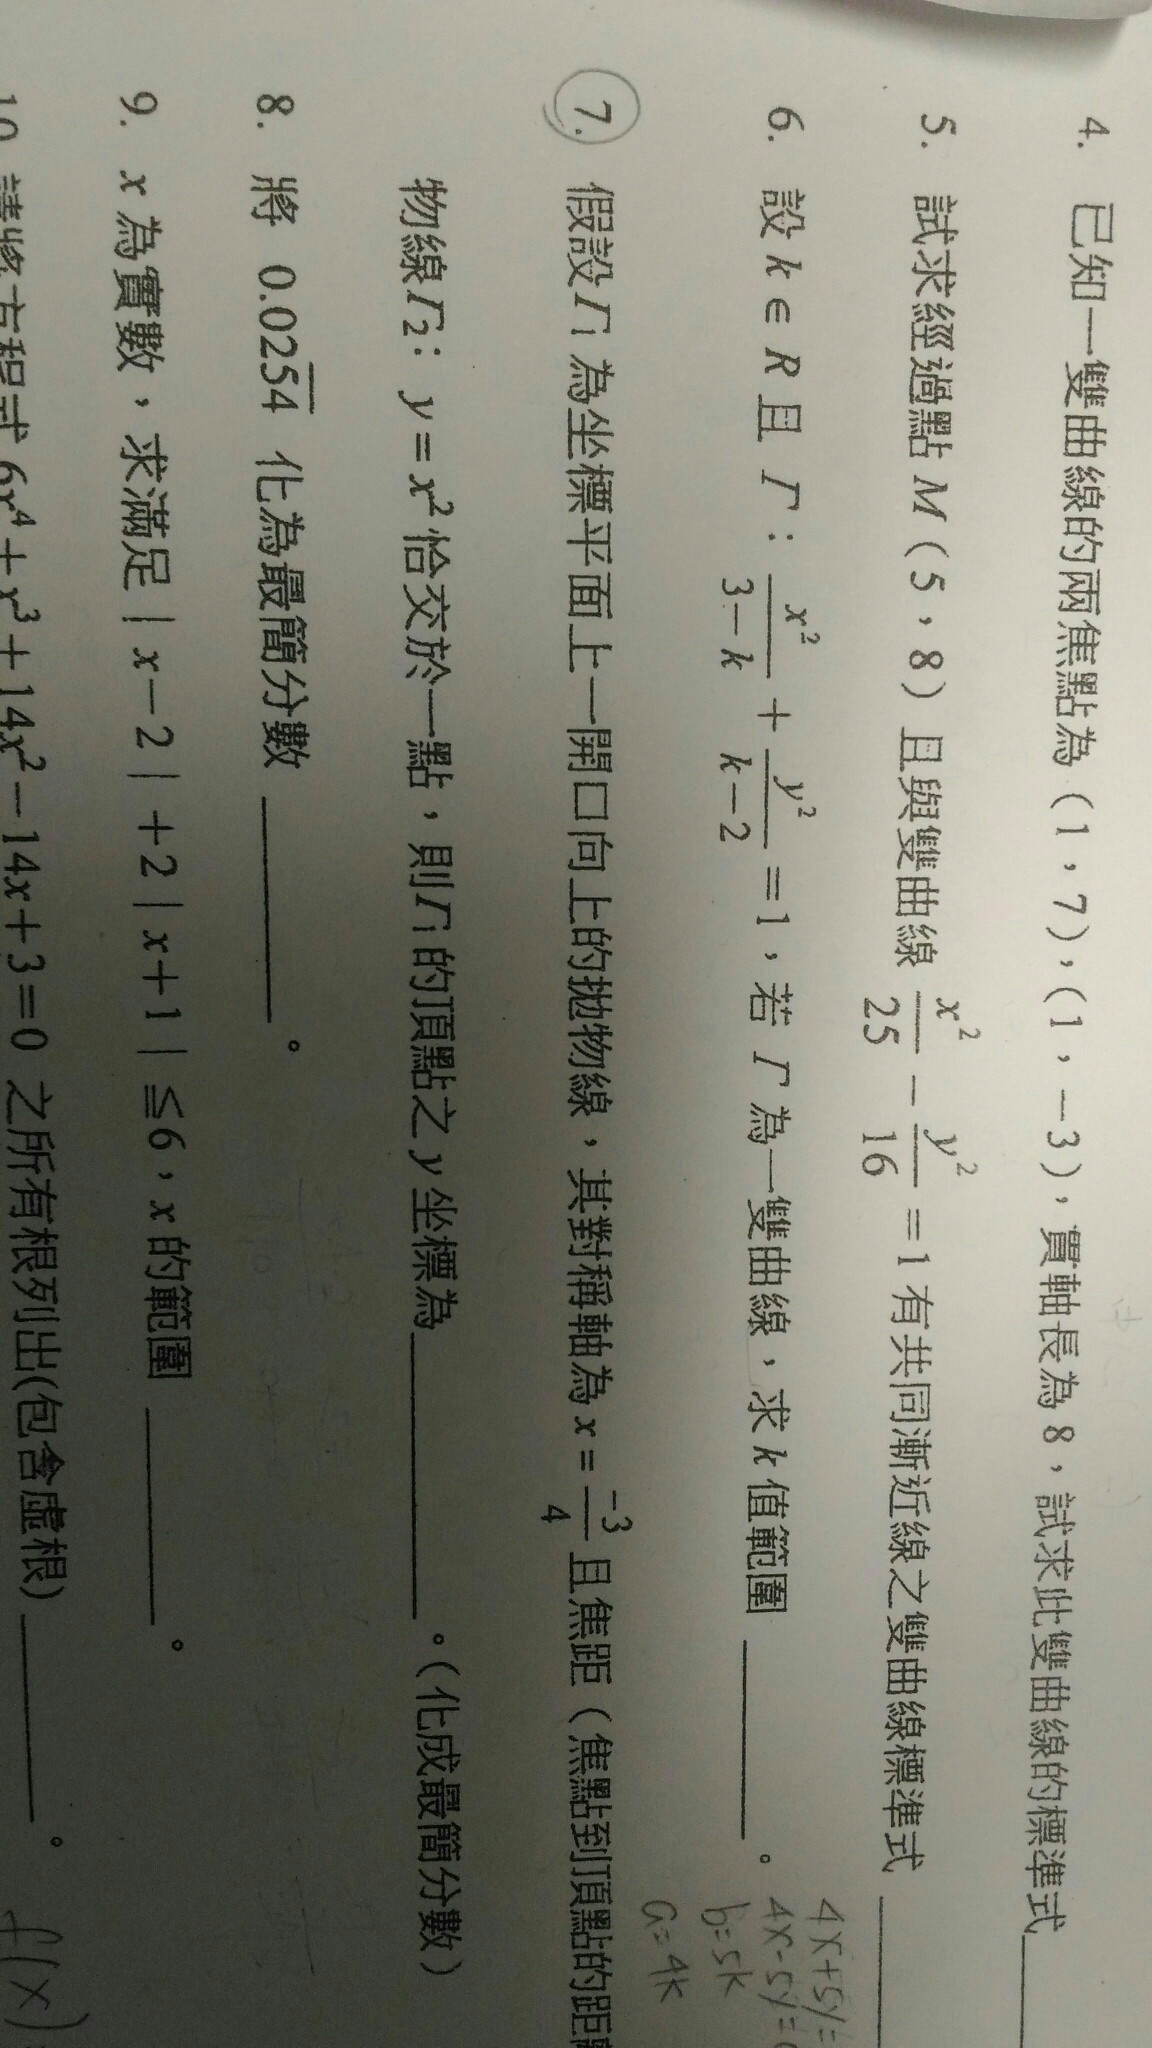 4. 已知一雙曲線的兩焦點為（1，7），（1，－3），貫軸長為 8，試求此雙曲線的標準式
5. 試求經過點 M（5，8）且與雙曲線 x²/25 － y²/16 ＝1 有共同漸近線之雙曲線標準式
6. 設 k∈R 且 Γ： x²/3－k ＋ y²/k－2 ＝1，若 Γ 為一雙曲線，求 k 值範圍 ＿＿＿。
4x+5y=
4x-5y=0
b=5k
a=4k
7. 假設 Γ1 為坐標平面上一開口向上的拋物線，其對稱軸為 x＝ －3/4 且焦距（焦點到頂點的距
物線 Γ2：y＝x² 恰交於一點，則 Γ1 的頂點之 y 坐標為＿＿＿。（化成最簡分數）
8. 將 0.02\overline{54} 化為最簡分數 ＿＿＿。
9. x 為實數，求滿足｜x－2｜＋2｜x＋1｜≦6，x 的範圍 ＿＿＿。
10. 請將方程式 6x⁴＋x³＋14x²－14x＋3＝0 之所有根列出(包含虛根) ＿＿＿。
f(x)